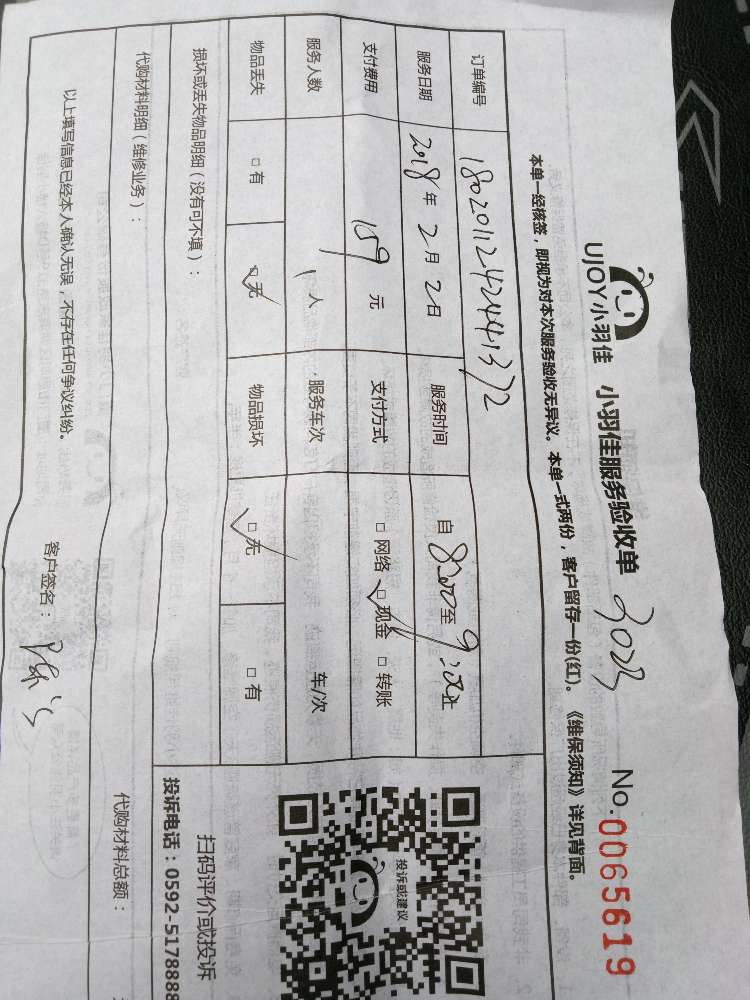 UJOY小羽佳 小羽佳服务验收单 3023 No.0065619
本单一经核签，即视为对本次服务验收无异议。本单一式两份，客户留存一份(红)。《维保须知》详见背面。
订单编号 18020112424441372
服务日期 2018年2月2日 服务时间 自8:00至9:00止
支付费用 159元 支付方式 □网络 ☑现金 □转账
服务人数 1人 服务车次 车/次
物品丢失 □有 ☑无 物品损坏 ☑无 □有
损坏或丢失物品明细（没有可不填）：
代购材料明细（维修业务）：
代购材料总额：
以上填写信息已经本人确认无误，不存在任何争议纠纷。
客户签名：
投诉或建议
扫码评价或投诉
投诉电话：0592-5178888